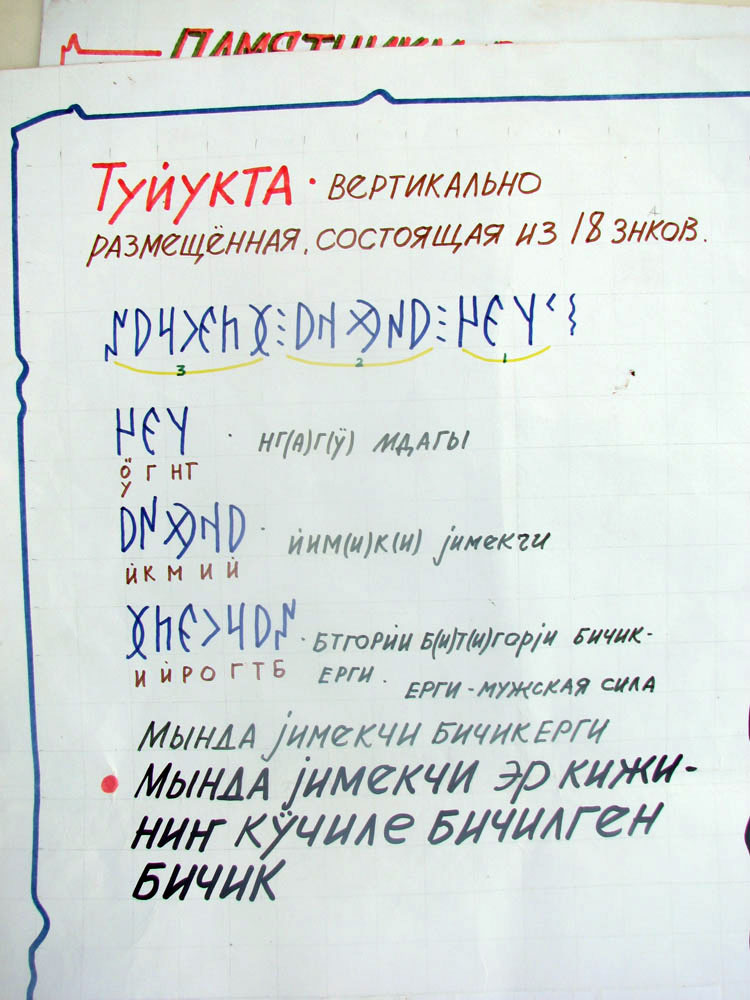 ПАМЯТНИКИ
Туйукта · вертикально
размещённая, состоящая из 18 знков.
3 2 1
· нг(а)г(ӱ) мдагы
ӧ г нг
у
· йим(и)к(и) јимекчи
й к м и й
· бтгорйи б(и)т(и)горји бичик-
и й р о г т б ерги.
ерги - мужская сила
Мында јимекчи бичик ерги
Мында јимекчи эр кижи-
ниҥ кӱчиле бичилген
бичик